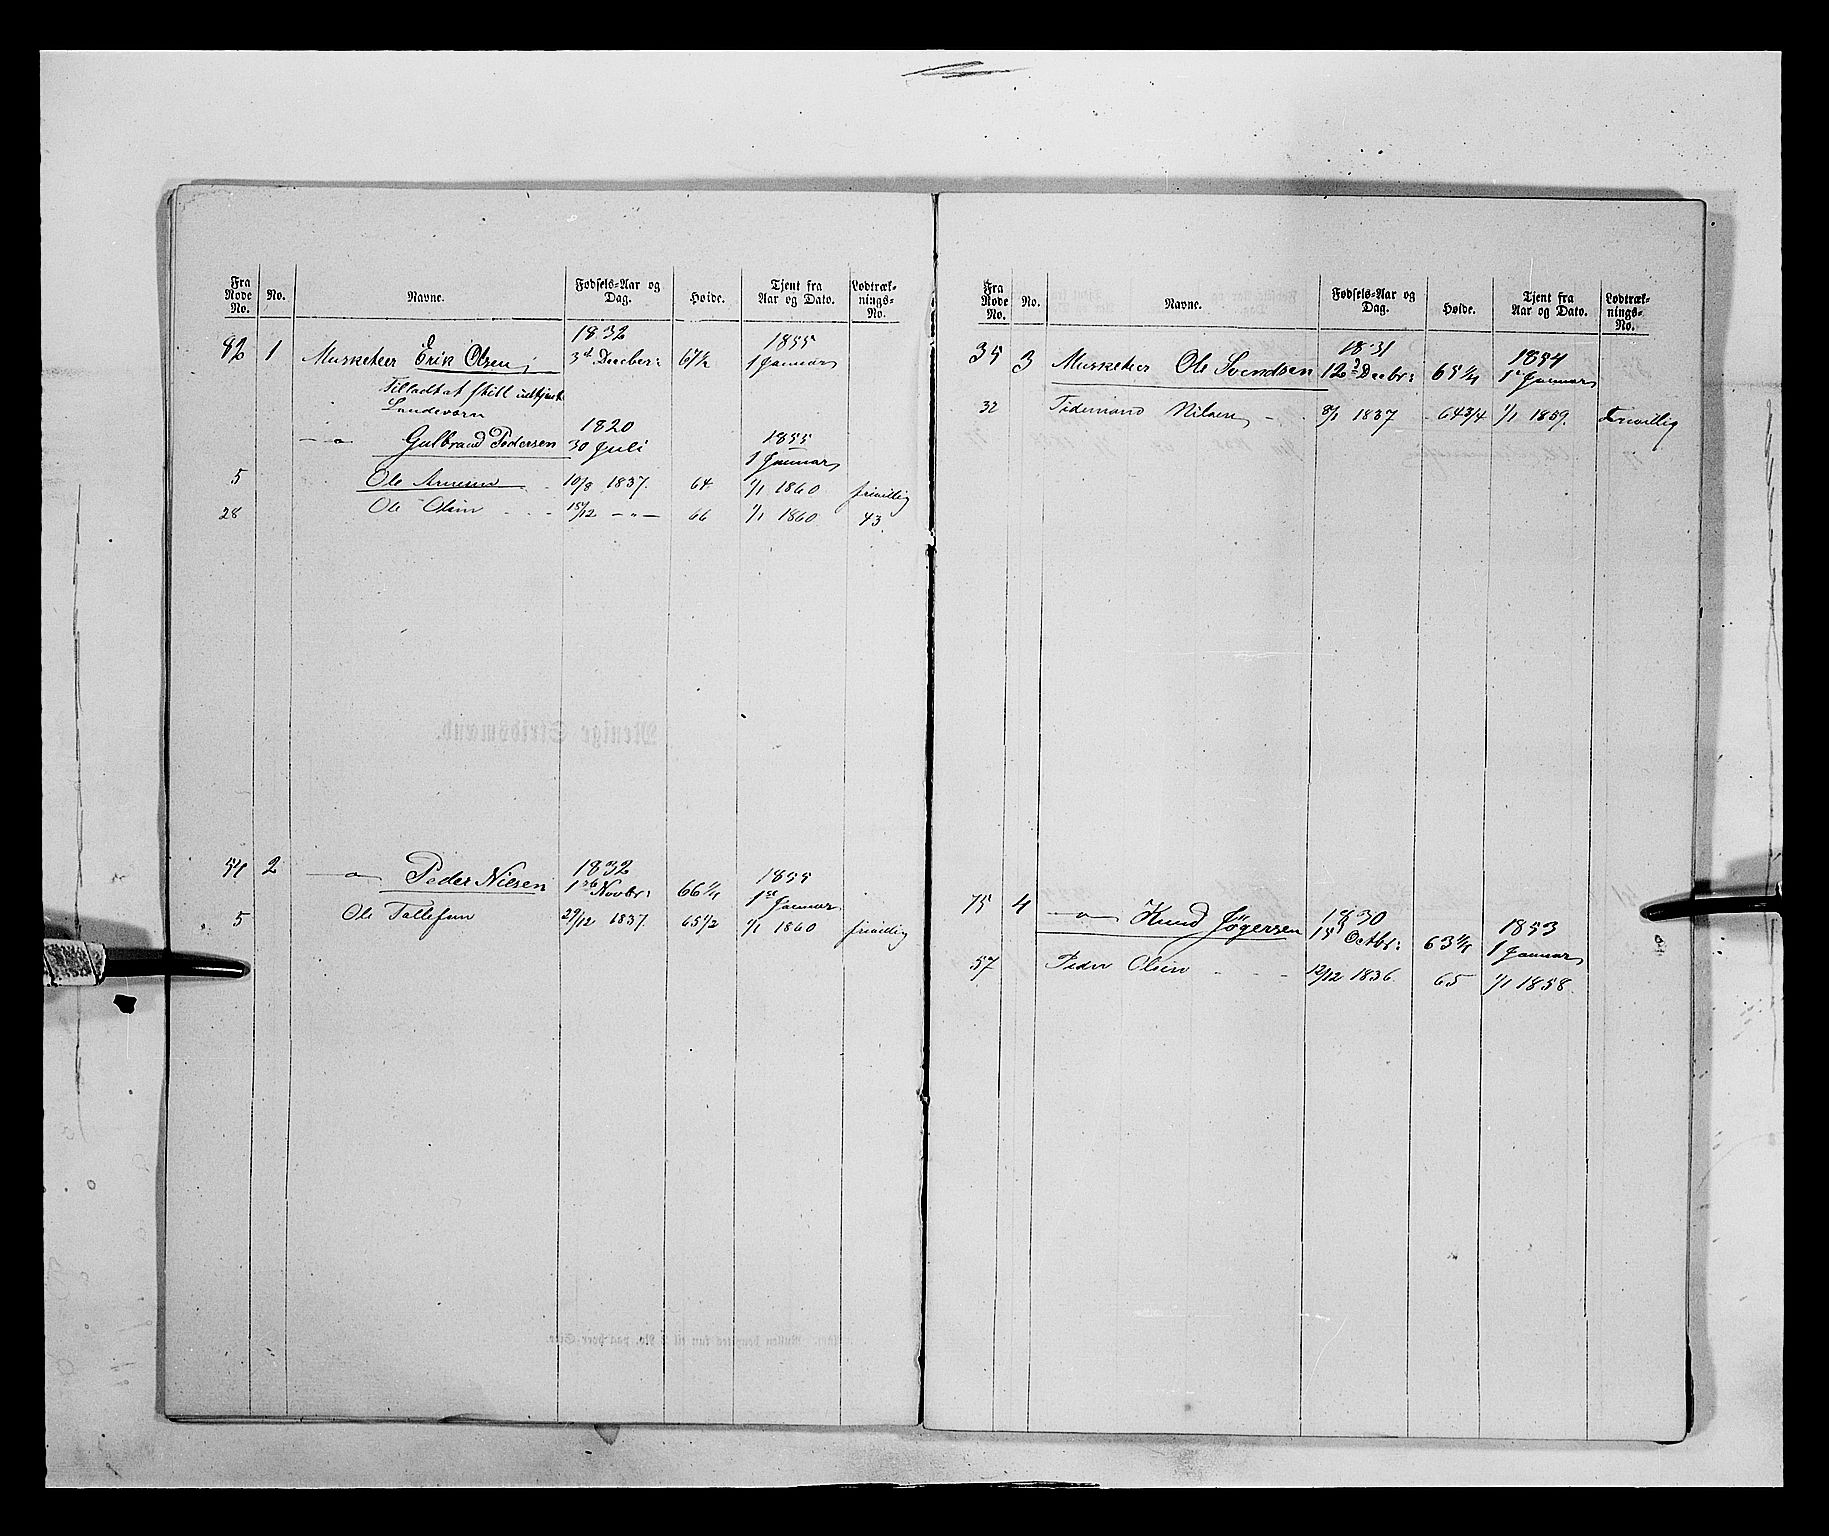 Fra Rode No. No. Navne. Fødsels-Aar og Dag. Høide. Tjent fra Aar og Dato. Lodtræk-nings-No.
1832 1855
82 1 Musketeer Erik Olsen 3d Decber: 67½ 1 Januar
Tilladt at
Landeværn
1820 1855
—〃— Gulbrand Pedersen 30 Juli 1 Januar
5 Ole 10/8 1837. 64 1/1 1860 frivillig
28 Ole Olsen 15/12 —〃— 66 1/1 1860 43.
1832 1855
54 2 —〃— Peder Nielsen 1ste Novbr: 66¼ 1ste Januar
5 Ole Tollefsen 29/12 1837. 65½ 1/1 1860 frivillig
Fra Rode No. No. Navne. Fødsels-Aar og Dag. Høide. Tjent fra Aar og Dato. Lodtræk-nings-No.
1831 1854
35 3 Musketeer Ole Svendsen 12 Decbr: 65¼ 1ste Januar
32 Tidemand Nilsen 8/1 1837 643/4 1/1 1859. Frivillig
1830 1853
75 4 —〃— Knud Jøgersen 15 Octbr: 63¼ 1 Januar
57 Peder Olsen 12/12 1836. 65 1/1 1858.